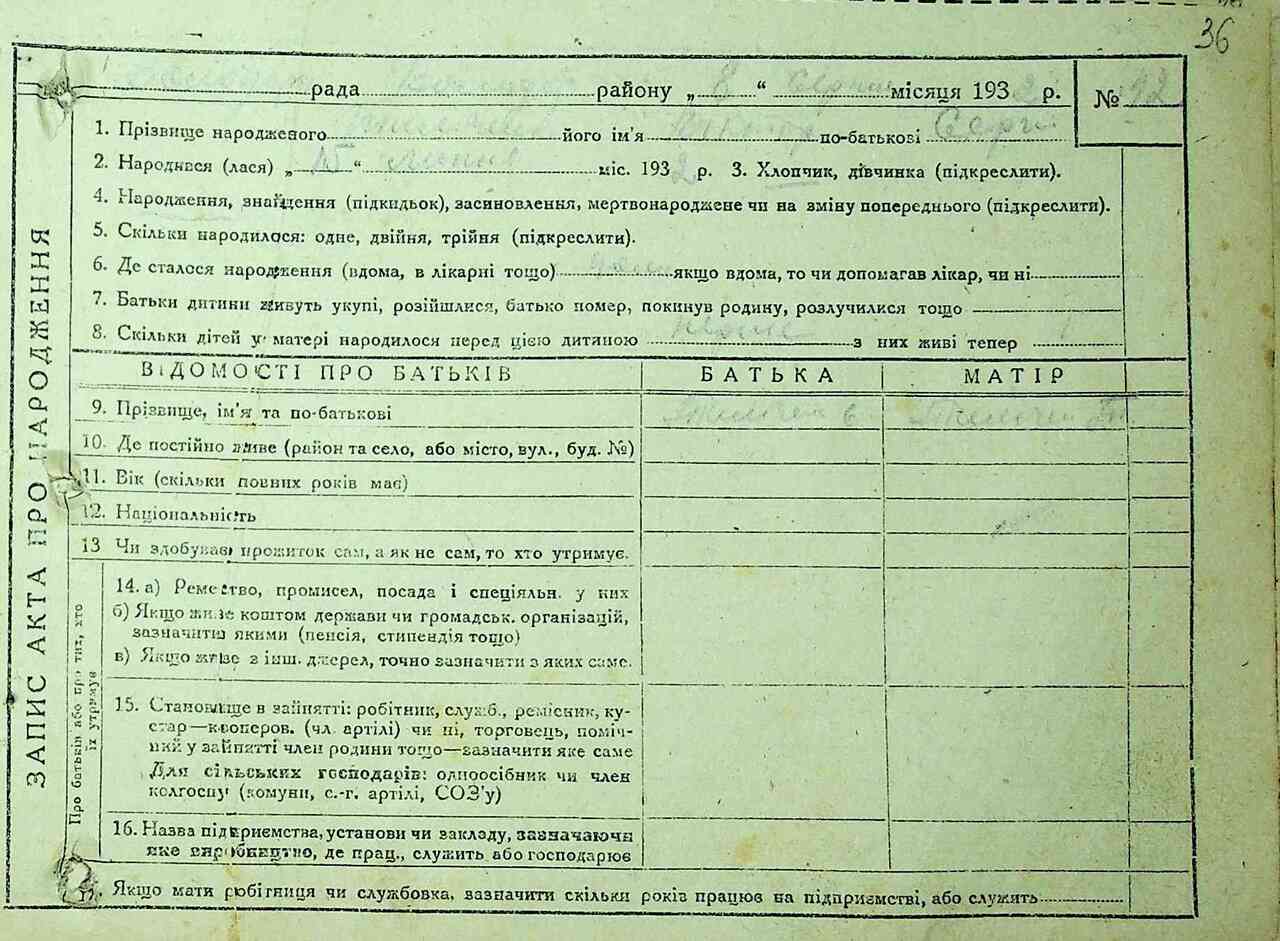 36
рада району „ 8 “ Серпня місяця 1932 р. № 92
1. Прізвище народженого його ім'я по-батькові Серг.
2. Народився (лася) „ 15 “ липня міс. 1932 р. 3. Хлопчик, дівчинка (підкреслити).
4. Народження, знайдення (підкидьок), засиновлення, мертвонароджене чи на зміну попереднього (підкреслити).
5. Скільки народилося: одне, двійня, трійня (підкреслити).
6. Де сталося народження (вдома, в лікарні тощо) якщо вдома, то чи допомагав лікар, чи ні
7. Батьки дитини живуть укупі, розійшлися, батько помер, покинув родину, розлучилися тощо
8. Скільки дітей у матері народилося перед цією дитиною з них живі тепер
ВІДОМОСТІ ПРО БАТЬКІВ БАТЬКА МАТІР
9. Прізвище, ім'я та по-батькові
10. Де постійно живе (район та село, або місто, вул., буд. №)
11. Вік (скільки повних років має)
12. Національність
13 Чи здобуває прожиток сам, а як не сам, то хто утримує.
14. а) Ремество, промисел, посада і спеціяльн. у них
б) Якщо живе коштом держави чи громадськ. організацій,
зазначити якими (пенсія, стипендія тощо)
в) Якщо живе з інш. джерел, точно зазначити з яких саме.
15. Становище в зайнятті: робітник, служб., ремісник, ку-
стар—кооперов. (чл. артілі) чи ні, торговець, поміч-
ний у зайнятті член родини тощо—зазначити яке саме
Для сільських господарів: одноосібник чи член
колгоспу (комуни, с.-г. артілі, СОЗ'у)
16. Назва підприємства, установи чи закладу, зазначаючи
яке виробництво, де прац., служить або господарює
17. Якщо мати робітниця чи службовка, зазначити скільки років працює на підприємстві, або служить
ЗАПИС АКТА ПРО НАРОДЖЕННЯ
Про батьків або про тих, хто
їх утримує